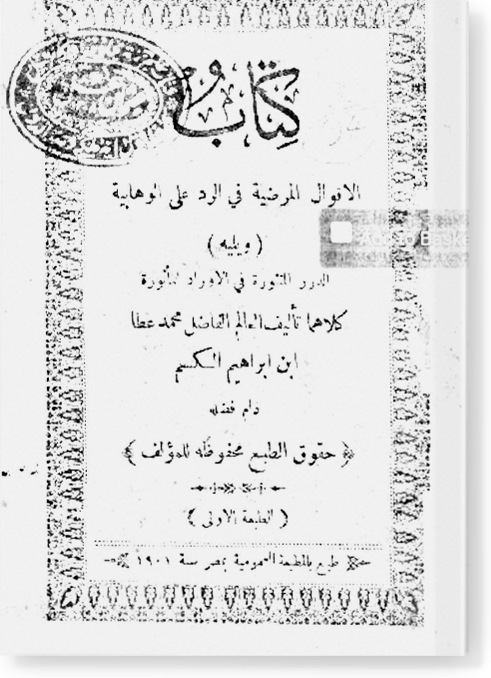 كتاب
الاقوال المرضية في الرد على الوهابية
( ويليه )
الدرر المنثورة في الاوراد المأثورة
كلاهما تأليف العالم الفاضل محمد عطا
ابن ابراهيم الكسم
دام فضله
﴿ حقوق الطبع محفوظه للمؤلف ﴾
( الطبعة الاولى )
طبع بالمطبعة العمومية بمصر سنة ١٩٠١